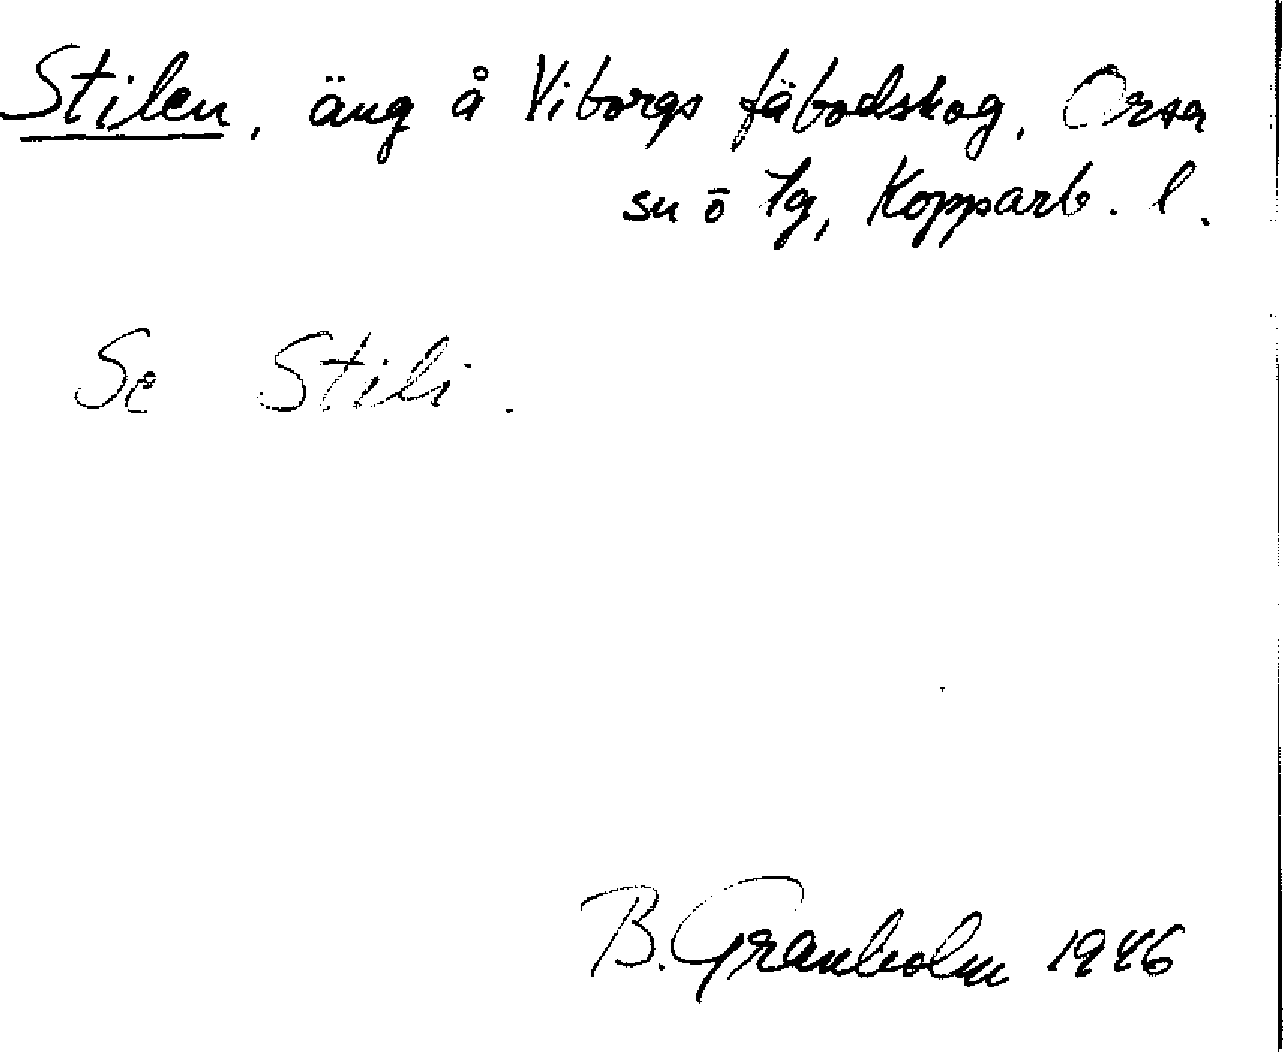 Stilen, äng å Viborgs fäbodskog, Orsa
sn ö tg, Kopparb. l.
Se Stili.
B. Granholm 1946